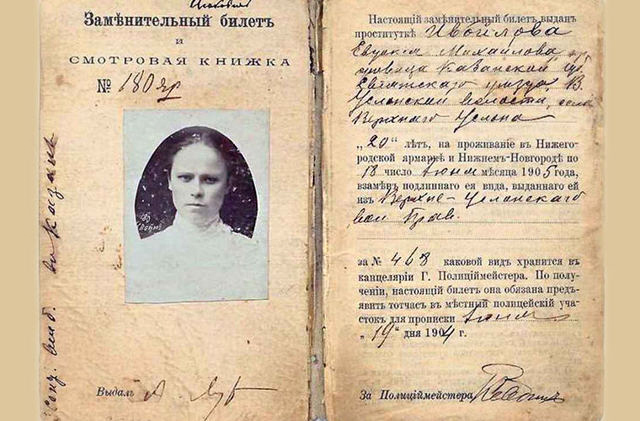 Замѣнительный билетъ
и
СМОТРОВАЯ КНИЖКА
№ 180 яр
Выдалъ
Настоящій замѣнительный билетъ выданъ
проституткѣ Ивойлова
Евдокія Михайлова, кр
Казанской гу
Свіяжскаго уѣзда, В.
Услонской волости, села
Верхняго Услона
„20“ лѣтъ, на проживаніе въ Нижего-
родской ярмаркѣ и Нижнемъ-Новгородѣ по
18 число Іюня мѣсяца 1905 года,
взамѣнъ подлиннаго ея вида, выданнаго ей
изъ Верхне-Услонскаго
вол Прав.
за № 463 каковой видъ хранится въ
канцеляріи Г. Полиціймейстера. По полу-
ченіи, настоящій билетъ она обязана предъ-
явить тотчасъ въ мѣстный полицейскій уча-
стокъ для прописки Іюня
„19“ дня 1904 г.
За Полиціймейстера